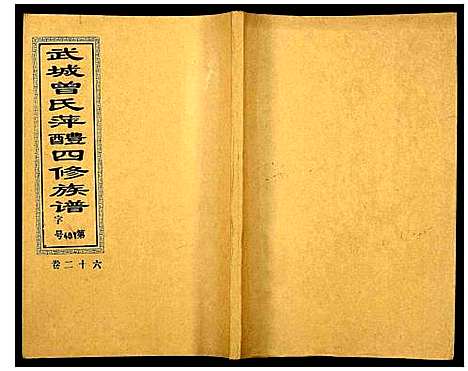 武城曾氏萍醴四修族谱
字
第
号
卷二十六